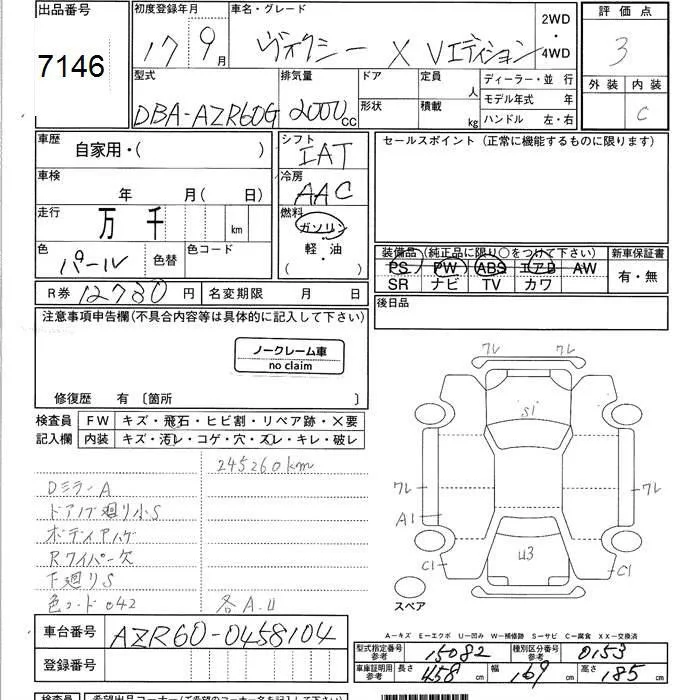 出品番号
7146
初度登録年月
17 9月
車名・グレード
ヴォクシー X Vエディション
2WD
・
4WD
評価点
3
型式
DBA-AZR60G
排気量
2000cc
ドア
形状
定員
人
積載
kg
ディーラー・並 行
モデル年式 年
ハンドル 左・右
外装 内装
C
車歴
自家用・( )
シフト
IAT
セールスポイント (正常に機能するものに限ります)
車検
年 月( 日)
冷房
AAC
走行
万 千 km
燃料
ガソリン
軽・油
( ・ )
色
パール
色替
色コード
装備品 (純正品に限り○をつけて下さい)
PS PW ABS エアB AW
SR ナビ TV カワ
新車保証書
有・無
R券 12730円
名変期限 月 日
後日品
注意事項申告欄(不具合内容等は具体的に記入して下さい)
ノークレーム車
no claim
修復歴 有 〔箇所 〕
検査員
記入欄
FW キズ・飛石・ヒビ割・リペア跡・×要
内装 キズ・汚レ・コゲ・穴・スレ・キレ・破レ
245260km
Dミラー A
ドアノブ廻り小S
ボディアハゲ
Rワイパー欠
下廻りS
色コード 042
各A.U
ワレ ワレ
S1
ワレ ワレ
A1
U3
C1 C1
スペア
A−キズ E−エクボ U−凹み W−補修跡 S−サビ C−腐食 XX−交換済
車台番号
AZR60-0458104
登録番号
型式指定番号
参考
15082
種別区分番号
参考
0153
車庫証明用
参考
長さ 458cm
幅 169cm
高さ 185cm
検査員
希望出品コーナー(ご希望のコーナー名を記入下さい)